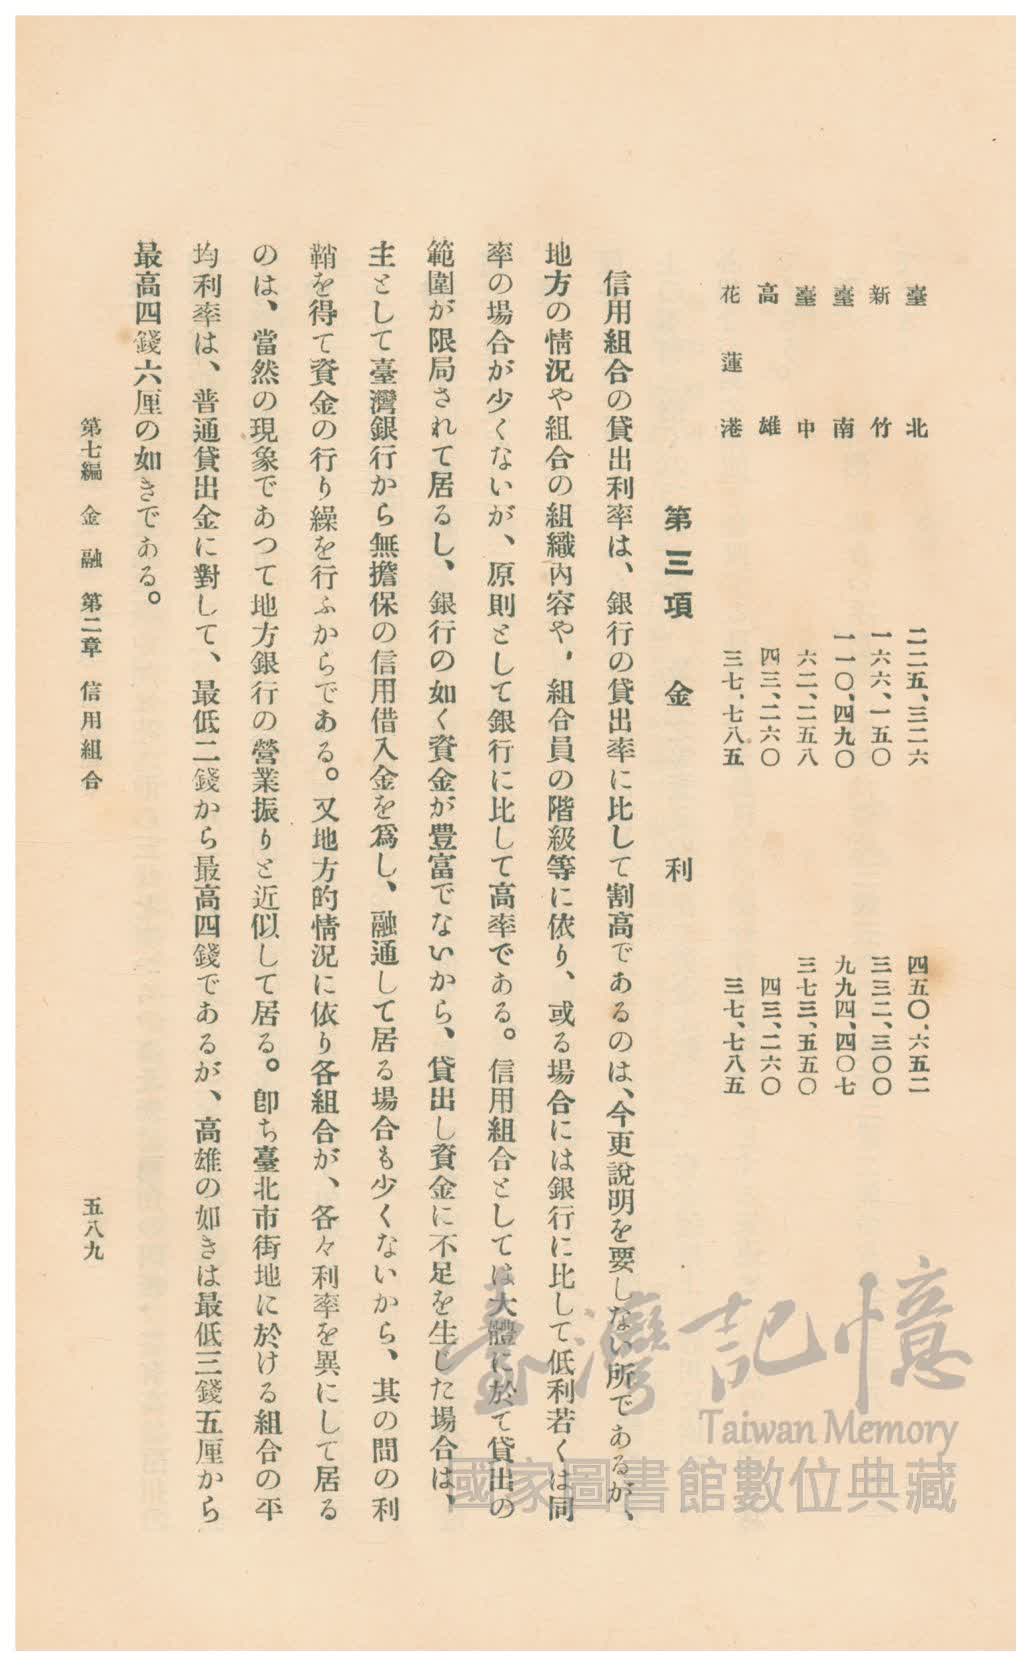 臺北　二二五、三二六　四五〇、六五二
新竹　一六六、一五〇　三三二、三〇〇
臺南　一一〇、四九〇　九九四、四〇七
臺中　六二、二五八　三七三、五五〇
高雄　四三、二六〇　四三、二六〇
花蓮港　三七、七八五　三七、七八五
第三項　金　利
信用組合の貸出利率は、銀行の貸出率に比して割高であるのは、今更說明を要しない所であるが、
地方の情況や組合の組織內容や、組合員の階級等に依り、或る場合には銀行に比して低利若くは同
率の場合が少くないが、原則として銀行に比して高率である。信用組合としては大體に於て貸出の
範圍が限局されて居るし、銀行の如く資金が豐富でないから、貸出し資金に不足を生じた場合は、
主として臺灣銀行から無擔保の信用借入金を爲し、融通して居る場合も少くないから、其の間の利
鞘を得て資金の行り繰を行ふからである。又地方的情況に依り各組合が、各々利率を異にして居る
のは、當然の現象であつて地方銀行の營業振りと近似して居る。卽ち臺北市街地に於ける組合の平
均利率は、普通貸出金に對して、最低二錢から最高四錢であるが、高雄の如きは最低三錢五厘から
最高四錢六厘の如きである。
第七編　金融　第二章　信用組合　五八九
臺灣記憶
Taiwan Memory
國家圖書館數位典藏